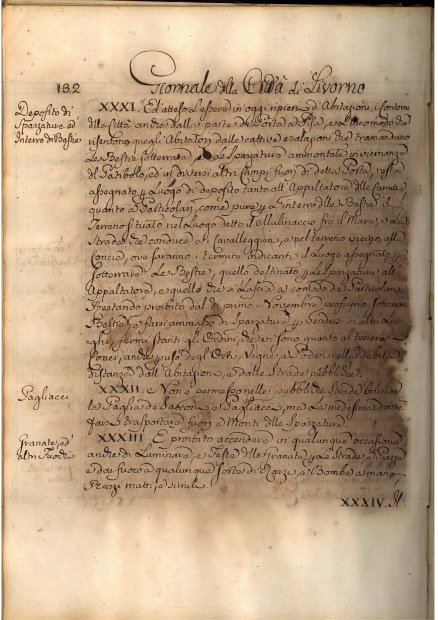 182
Giornale della Città di Livorno
Deposito di
Spazzatura ed
Interro di Bestie
XXXI. Ed atteso l'essere in oggi ripieni d'Abitazioni i contorni
della Città anche dalla parte di Porta a Pisa, e l'Incomodo che
risentono quegli Abitatori dalle cattive esalazioni che tramandano
Le Bestie sotterrate, e Le Spazzature ammontate in vicinanza
del Patibolo, ed in diversi altri Campi fuori di detta Porta, resta
assegnato p Luogo di deposito tanto all'Appaltatore delle Carrette
quanto a Particolari, come pure p L'interro delle Bestie il
Terreno situato nel Luogo detto il Mulinaccio, fra il Marzocco e La
Strada che conduce a Cavalleggieri, e quel terreno vicino alla
Concia, ove saranno i termini indicanti il Luogo assegnato p
sotterrare Le Bestie, quello destinato p Le Spazzature all'
Appaltatore, e quello che si Lascia a comodo de Particolari,
Restando proibito dal dì primo Novembre prossimo sotterrar
Bestie, o fare ammasso di Spazzatura p Vendere in altri Luo-
ghi, fermi stanti gl'Ordini, che vi sono quanto al tenere
Conci, anche p uso degl'Orti, Vigne, e Poderi nelle debite
distanze dall'Abitazioni, e dalle Strade pubbliche.
Pagliacci
XXXII. Non è permesso nelle pubbliche Strade bruciar
La Paglia de Sacconi, e Pagliacci, ma La medesima dovrà
farsi trasportare fuori a Monti delle Spazzature
Granate, ed
altri Fuochi
XXXIII. È proibito accendere in qualunque occasione
anche di Luminara, e Feste delle Granate p Le Strade, e Piazze
e dar fuoco a qualunque sorta di Razzi, e Bombe a mano,
Razzi matti, e simili.
XXXIV. Il